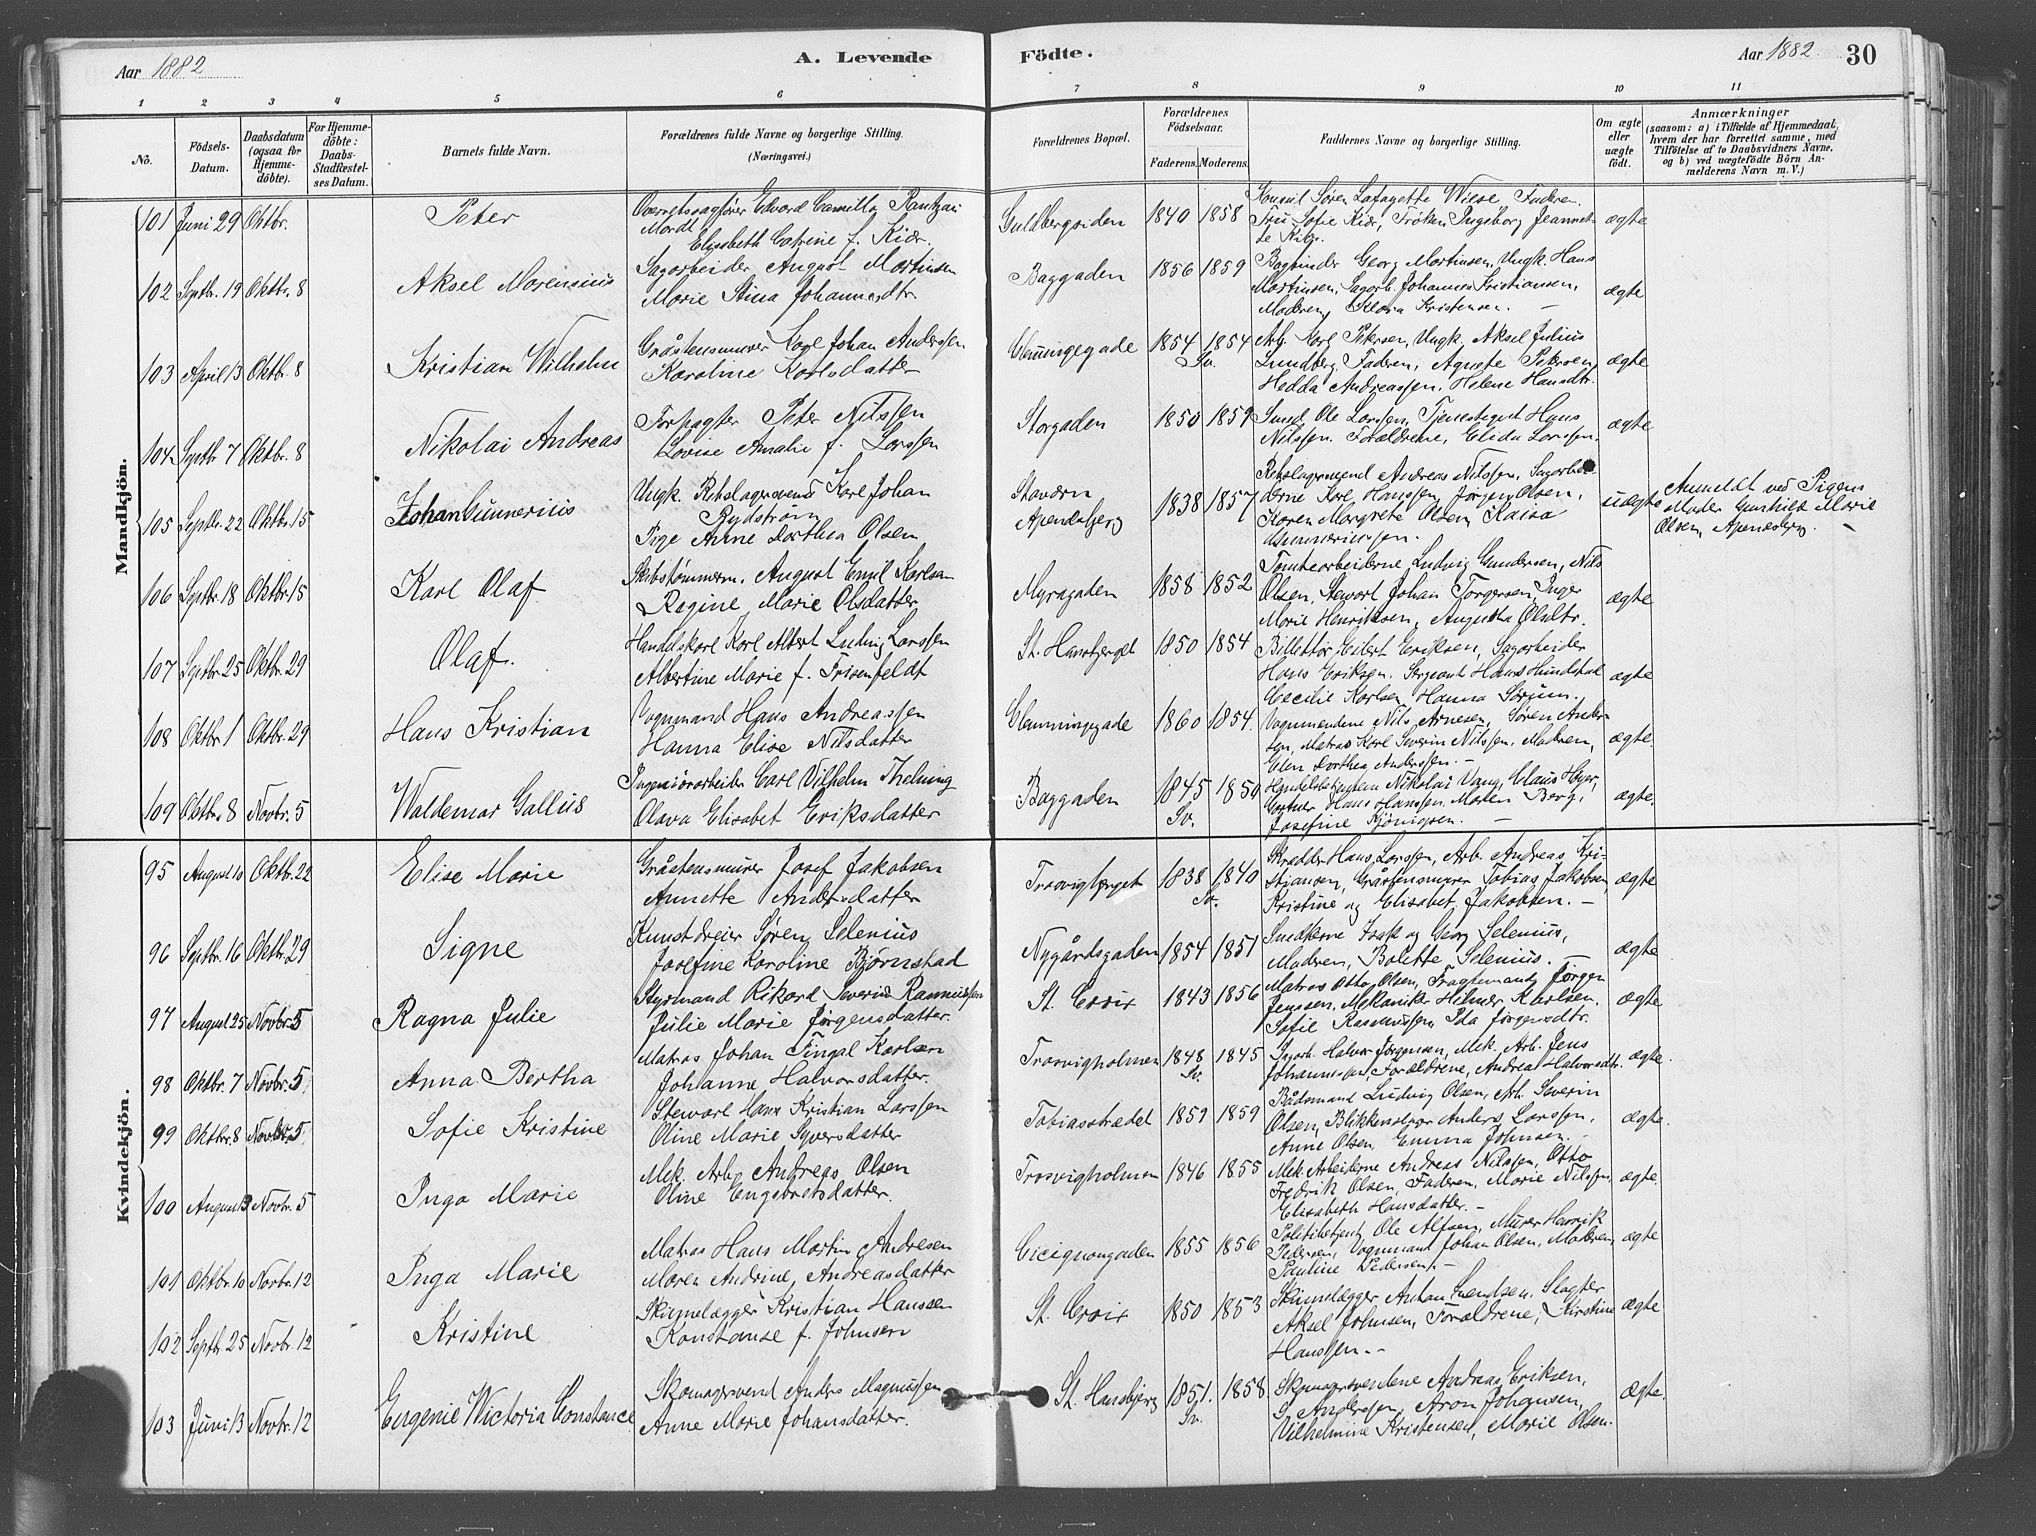 Aar 1882
A. Levende
Födte.
Aar 1882.
30
1 2 3 4 5 6 7 8 9 10 11
No.
Födsels-Datum.
Daabsdatum (ogsaa for Hjemme-döbte).
For Hjemme-döbte: Daabs-Stadfæstel-ses Datum.
Barnets fulde Navn.
Forældrenes fulde Navne og borgerlige Stilling.
(Næringsvei.)
Forældrenes Bopæl.
Forældrenes Födselsaar.
Faderens. Moderens.
Faddernes Navne og borgerlige Stilling.
Om ægte eller uægte födt.
Anmærkninger
(saasom: a) i Tilfælde af Hjemmedaab,
hvem der har forrettet samme, med
Tilföielse af to Daabsvidners Navne,
og b) ved uægtefödte Börn An-
melderens Navn m. V.)
Mandkjön.
101 Juni 29 Oktbr. Peter
Overretssagfører Edvard Camillo Rantzau
Mordt
Elysabeth Catrine f. Kiær.
Guldbergsiden 1840 1858
Konsul Søren Lafayette Wiese Faderen.
Fru Sofie Kiær, Frøken Ingeborg Jeannet-
te Kiær.
ægte
102 Septbr. 19 Oktbr. 8 Aksel Morensius
Sagarbeider August Martinsen
Marie Stina Johannesdtr
Baggaden 1856 1859
Bogbinder Georg Martinsen, Ungk. Hans
Martinsen, Sagarb. Johannes Kristiansen,
Moderen, Flora Kristensen. —
ægte
103 April 13 Oktbr. 8 Kristian Wilhelm
Gråstensmurer Karl Johan Anderssen
Karoline Karlsdatter
Clemmingegade 1854 1854
Sv.
Arb. Karl Petersen, Ungk. Aksel Julius
Lundberg, Faderen, Agnete Petersen,
Hedda Andreassen, Helene Hansdtr.
ægte
104 Septbr 7 Oktbr. 8 Nikolai Andreas
Forpagter Peter Nilssen
Lovise Amalie f. Larssen
Storgaden 1850 1859
Smed Ole Larssen, Tjenestegut Hans
Nilssen, Forældrene, Elida Larssen.
ægte
105 Septbr. 22 Oktbr. 15 Johan Gunnerius
Ungk. Rebslagersvend Karl Johan
Rydstrøm
Pige Anne Dorthea Olsen
Stavern
Apenesberg
1838 1857
Rebslagersvend Andreas Nilssen, Sagarbei-
derne Karl Hanssen, Jørgen Olsen,
Karen Margrete Olsen, Kaisa
Gunneriussen.
uægte
Anmeldt ved Pigens
Moder Gunhild Marie
Olsen, Apenesberg.
106 Septbr. 18 Oktbr. 15 Karl Olaf
Skibstømmerm. August Emil Karlsen
Regine Marie Olsdatter
Myragaden 1858 1852
Tomtearbeiderne Ludvig Gundersen, Nils
Olsen, Stewart Johan Torgersen, Inger
Marie Henriksen, Augusta Olsdtr.
ægte
107 Septbr. 25 Oktbr. 29 Olaf.
Handelskarl Karl Albert Ludvig Larssen
Albertine Marie f. Frisenfeldt
St. Hansbjerget 1850 1854
Billettør Eilert Eriksen, Sagarbeider
Hans Eriksen, Sergeant Hans Hundstad
Cecilie Karlsen, Hanna Sørum.
ægte
108 Oktbr. 1 Oktbr. 29 Hans Kristian
Vognmand Hans Andreassen
Hanna Elise Nilsdatter
Clemmingegade 1860 1854.
Vognmændene Nils Arnesen, Søren Ander-
sen, Matros Karl Severin Nilssen, Moderen,
Elen Dorthea Anderssen. —
ægte.
109 Oktbr. 8 Novbr. 5 Waldemar Gallus
Ingeniørarbeider Carl Vilhelm Thelning
Olava Elisabet Eriksdatter
Baggaden 1845 1850
Sv.
Handelsbetjentene Nikolai Vang, Claus Høyer,
Gartner Hans Hanssen, Maren Berg,
Josefine Kjönigsen. —
ægte.
Kvindekjön.
95 August 10 Oktbr. 22 Elise Marie
Gråstensmurer Josef Jakobsen
Annette Andersdatter
Trosvigberget 1838 1840
Sv.
Skrædder Hans Larssen, Arb. Andreas Kri-
stiansen, Gråstensmurer Tobias Jakobsen,
Kristine og Elisabet Jakobsen. —
ægte
96 Septbr. 16 Oktbr. 29 Signe
Kunstdreier Søren Selenius
Josefine Karoline Bjørnstad
Nygårdsgaden 1854 1851
Smedene Isak og Georg Selenius,
Moderen, Bolette Selenius. —
ægte
97 August 25 Novbr. 5 Ragna Julie
Styrmand Rikard Severin Rasmussen
Julie Marie Jørgensdatter.
St. Croix 1843 1856
Matros Otto Olsen, Fragtemand Jørgen
Jenssen, Mekaniker Hilmer Karlsen.
Sofie Rasmussen, Ida Jørgensdtr.
ægte
98 Oktbr. 7 Novbr. 5 Anna Bertha
Matros Johan Fingal Karlsen
Johanne Halvorsdatter.
Trosvigholmen 1848 1845
Sv.
Sagarb. Halvor Jørgensen, Mek. Arb. Jens
Johannessen, Forældrene, Andrea Halvorsdtr.
ægte.
99 Oktbr. 8 Novbr. 5 Sofie Kristine
Stewart Hans Kristian Larssen
Oline Marie Syversdatter
Tobiasstrædet 1859 1859
Bådsmand Ludvig Olsen, Arb. Severin
Olsen, Blikkenslager Anders Larssen,
Anne Olsen, Emma Johnsen.
ægte.
100 August 3 Novbr. 5 Inga Marie
Mek. Arb. Andreas Olsen
Oline Engebretsdatter.
Trosvigholmen 1846 1855
Mek. Arbeiderne Andreas Nilssen, Otto
Fredrik Olsen, Faderen, Marie Nilssen,
Elisabeth Hansdatter. —
ægte.
101 Oktbr. 10 Novbr. 12 Inga Marie
Matros Hans Martin Andresen
Maren Andrine Andreasdatter
Cicignongaden 1855 1856
Politibetjent Ole Alfsen, Murer Henrik
Pedersen, Vognmand Johan Olsen, Moderen,
Pauline Pedersen. —
ægte
102 Septbr. 25 Novbr. 12 Kristine
Skinnelægger Kristian Hanssen
Konstanse f. Johnsen
St. Croix 1850 1853
Skinnelægger Anton Svendsen, Slagter
Aksel Johnsen, Forældrene, Kirstine
Hanssen. —
ægte
103 Juni 13 Novbr. 12 Eugenie Wictoria Constance
Skomagersvend Anders Magnussen
Anne Marie Johansdatter.
St. Hansbjerg 1851. 1858.
Sv.
Skomagersvendene Andreas Eriksen,
S. Anderssen, Aron Johansen,
Vilhelmine Kristensen, Marie Olsen.
ægte.